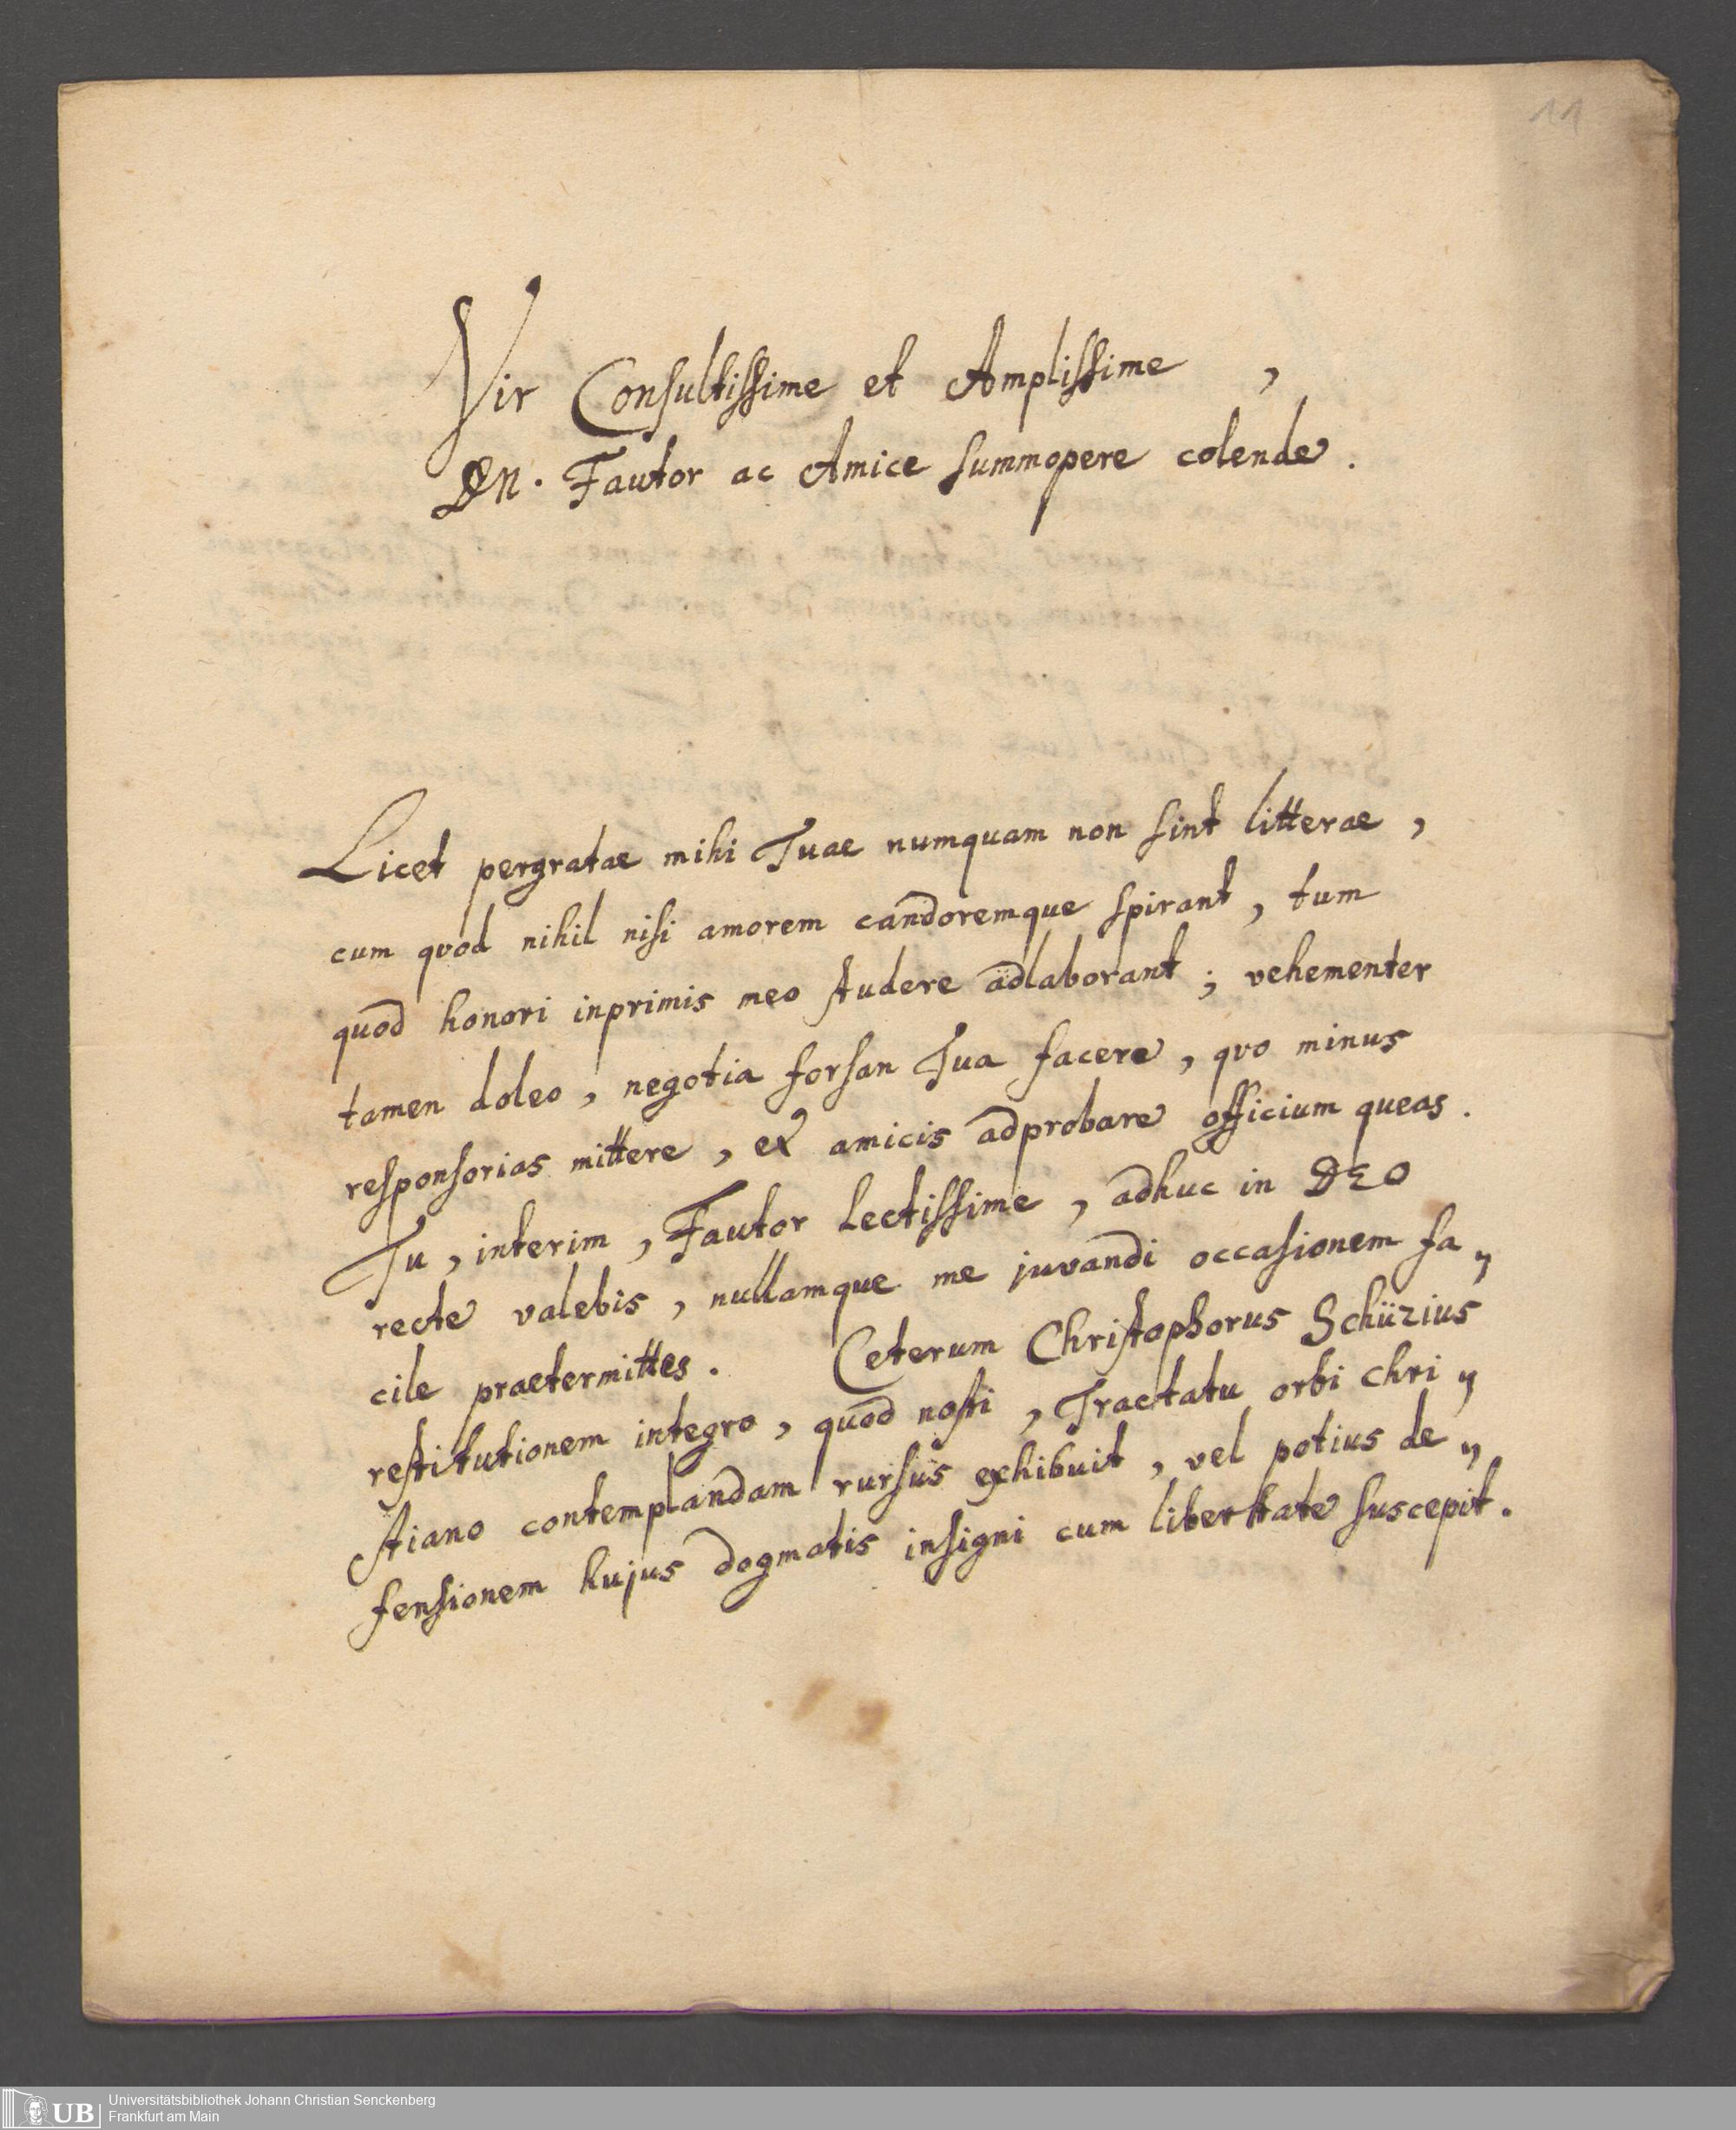 11
Vir Consultissime et Amplissime ,
DN. Fautor ac Amice summopere colende .
Licet pergratae mihi Tuae numquam non sint litterae ,
cum qvod nihil nisi amorem candoremque spirant , tum
quod honori inprimis meo studere adlaborant ; vehementer
tamen doleo , negotia forsan Tua facere , qvo minus
responsorias mittere , et amicis adprobare officium queas .
Tu , interim , Fautor lectissime , adhuc in DEO
recte valebis , nullamque me juvandi occasionem fa„
cile praetermittes . Ceterum Christophorus Schüzius
restitutionem integro , quod nosti , Tractatu orbi chri„
stiano contemplandam rursus exhibuit , vel potius de„
fensionem hujus dogmatis insigni cum libertate suscepit .
UB
Universitätsbibliothek Johann Christian Senckenberg
Frankfurt am Main